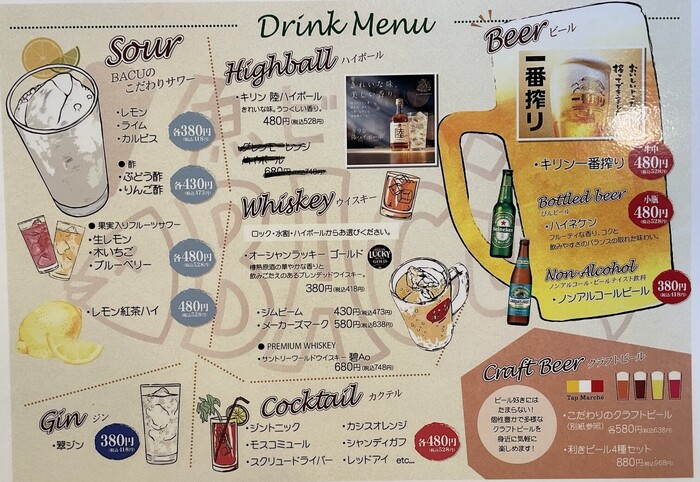 Drink Menu
Sour
BACUの
こだわりサワー
・レモン
・ライム
・カルピス
各380円
(税込418円)
●酢
・ぶどう酢
・りんご酢
各430円
(税込473円)
●果実入りフルーツサワー
・生レモン
・木いちご
・ブルーベリー
各480円
(税込528円)
・レモン紅茶ハイ
480円
(税込528円)
Gin ジン
・翠ジン
380円
(税込418円)
Highball ハイボール
・キリン 陸ハイボール
きれいな味。うつくしい香り。
480円(税込528円)
きれいな味、
美しい香り。
陸
680円(税込748円)
Whiskey ウイスキー
ロック・水割・ハイボールからお選びください。
・オーシャンラッキー ゴールド
樽熟原酒の華やかな香りと
飲みごたえのあるブレンデッドウイスキー。
380円(税込418円)
LUCKY
GOLD
・ジムビーム 430円(税込473円)
・メーカーズマーク 580円(税込638円)
●PREMIUM WHISKEY
・サントリーワールドウイスキー 碧Ao
680円(税込748円)
Cocktail カクテル
・ジントニック
・モスコミュール
・スクリュードライバー
・カシスオレンジ
・シャンディガフ
・レッドアイ etc...
各480円
(税込528円)
Beer ビール
一番搾り
おいしいとこだけ
搾ってできてます。
・キリン一番搾り
生中
480円
(税込528円)
Bottled beer
びんビール
・ハイネケン
フルーティな香り、コクと
飲みやすさのバランスの取れた味わい。
小瓶
480円
(税込528円)
Heineken
Non-Alcohol
ノンアルコール・ビールテイスト飲料
・ノンアルコールビール
380円
(税込418円)
Craft Beer クラフトビール
ビール好きには
たまらない!
個性豊かで多様な
クラフトビールを
身近に気軽に
楽しめます!
Tap Marché
・こだわりのクラフトビール
(別紙参照) 各580円(税込638円)
・利きビール4種セット
880円(税込968円)